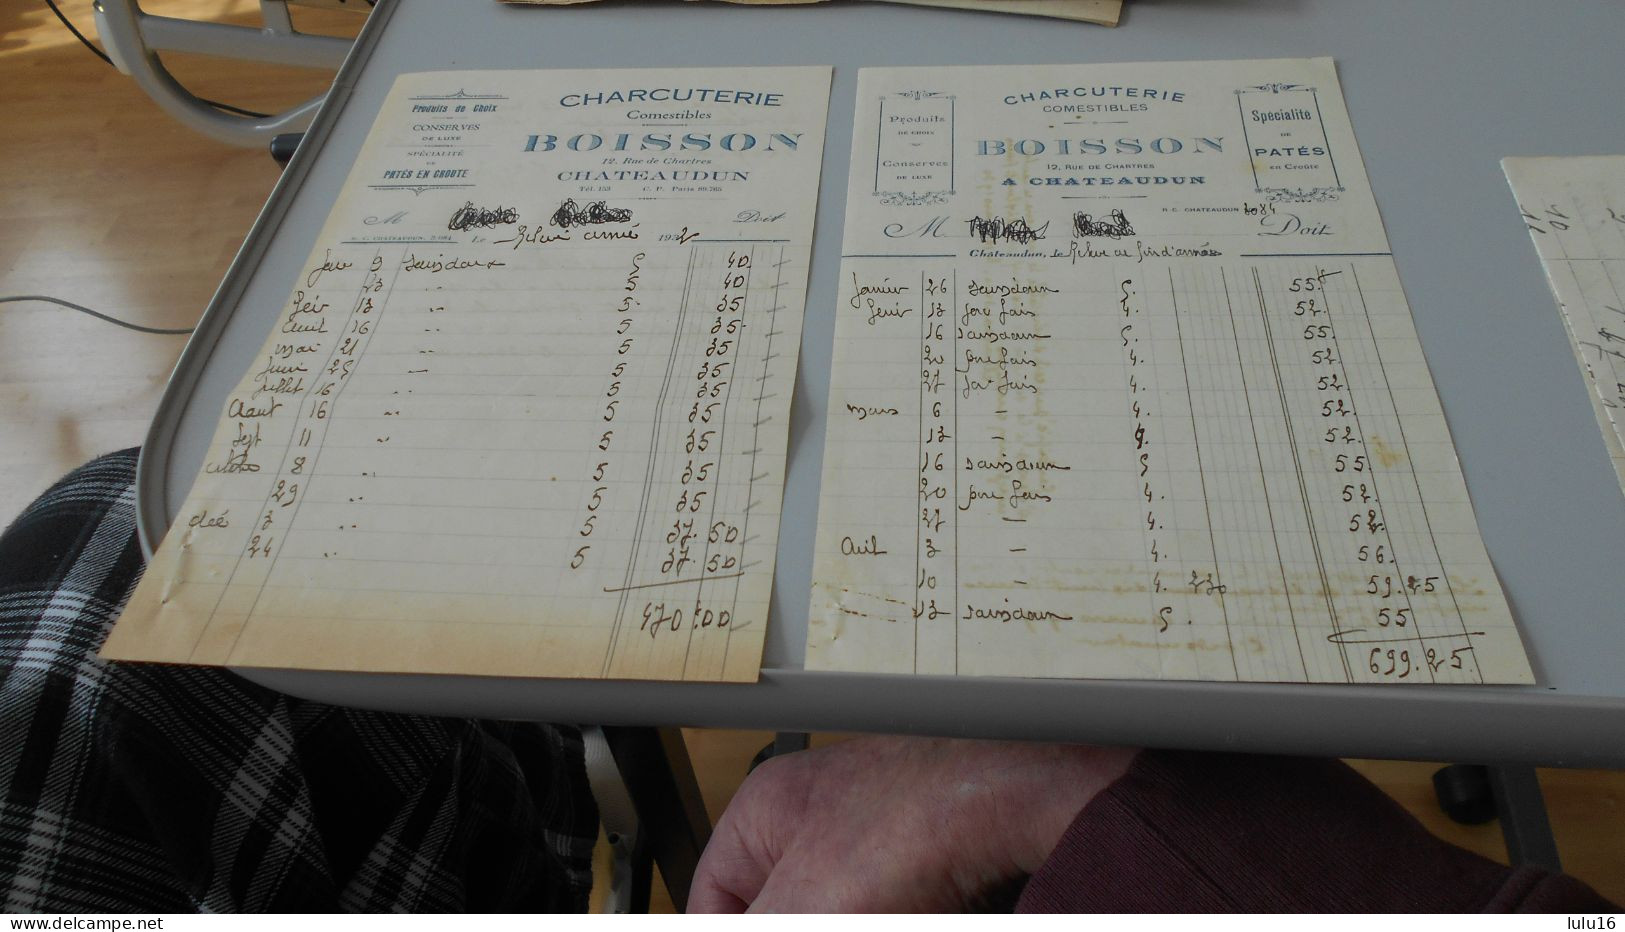 Produits de Choix
CONSERVES
DE LUXE
SPÉCIALITÉ
DE
PATÉS EN CROUTE
CHARCUTERIE
Comestibles
BOISSON
12, Rue de Chartres
CHATEAUDUN
Tél. 153 C. P. Paris 89.765
M Doit
R. C. CHATEAUDUN. 2.084 le année 1932
9 5 40
23 " 5 40
13 " 5 35
16 " 5 35
mai 21 " 5 35
25 5 35
juillet 16 " 5 35
Aout 16 " 5 35
Sept 11 " 5 35
8 " 5 35
29 " 5 35
dec 3 " 5 37.50
24 " 5 37.50
470:00
Produits
DE CHOIX
Conserves
DE LUXE
CHARCUTERIE
COMESTIBLES
BOISSON
12, RUE DE CHARTRES
A CHATEAUDUN
Spécialité
DE
PATÉS
en Croûte
R. C. CHATEAUDUN 2084
M Doit
Châteaudun, le fin d'année
Janvier 26 saindoux 5. 55
13 4. 52.
16 saindoux 5. 55.
20 4. 52
27 4. 52.
mars 6 — 4. 52.
13 — 4. 52.
16 saindoux 5 55.
20 4. 52.
27 — 4. 52.
Avril 3 — 4. 56.
10 — 4. 230 59.25
13 saindoux 5. 55
699.25.
lulu16